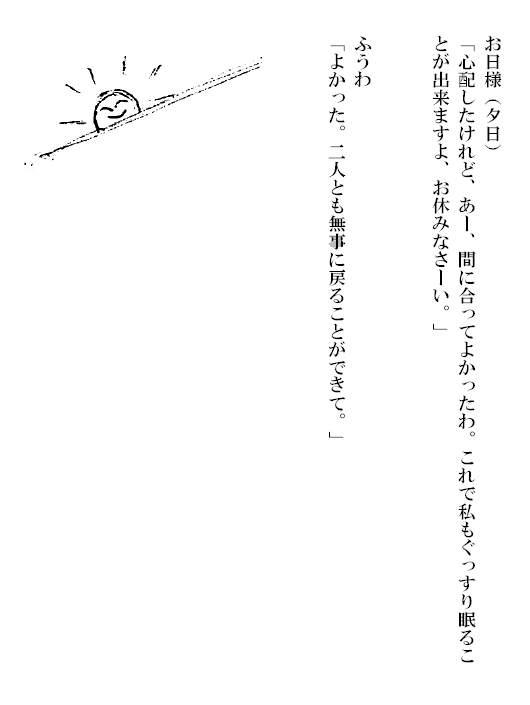 お日様（夕日）
「心配したけれど、あー、間に合ってよかったわ。これで私もぐっすり眠るこ
とが出来ますよ、お休みなさーい。」
ふうわ
「よかった。二人とも無事に戻ることができて。」